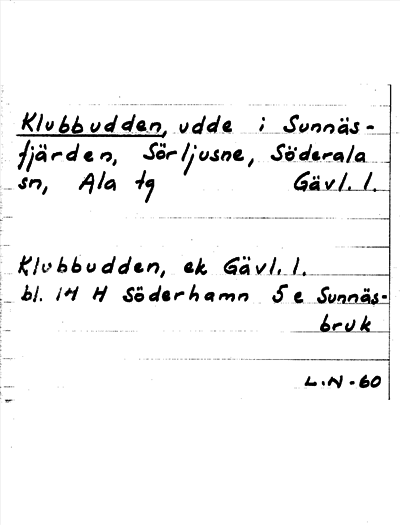 Klubbudden, udde i Sunnäs-
fjärden, Sörljusne, Söderala
sn, Ala tg Gävl. l.
Klubbudden, ek Gävl. l.
bl. 14 H Söderhamn 5 e Sunnäs-
bruk
L.N-60